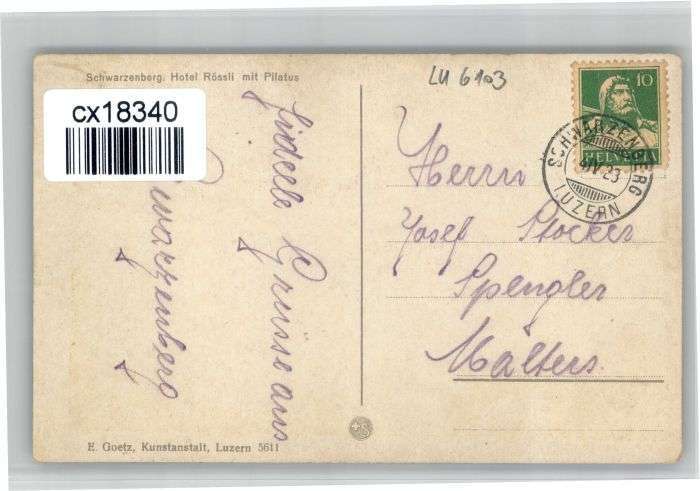 Schwarzenberg. Hotel Rössli mit Pilatus
LU 6103
cx18340
10
HELVETIA
SCHWARZENBERG
IV 23
LUZERN
Herrn
Josef Stocker
Spengler
Malters.
fidele Grüsse aus
Schwarzenberg
E. Goetz, Kunstanstalt, Luzern 5611